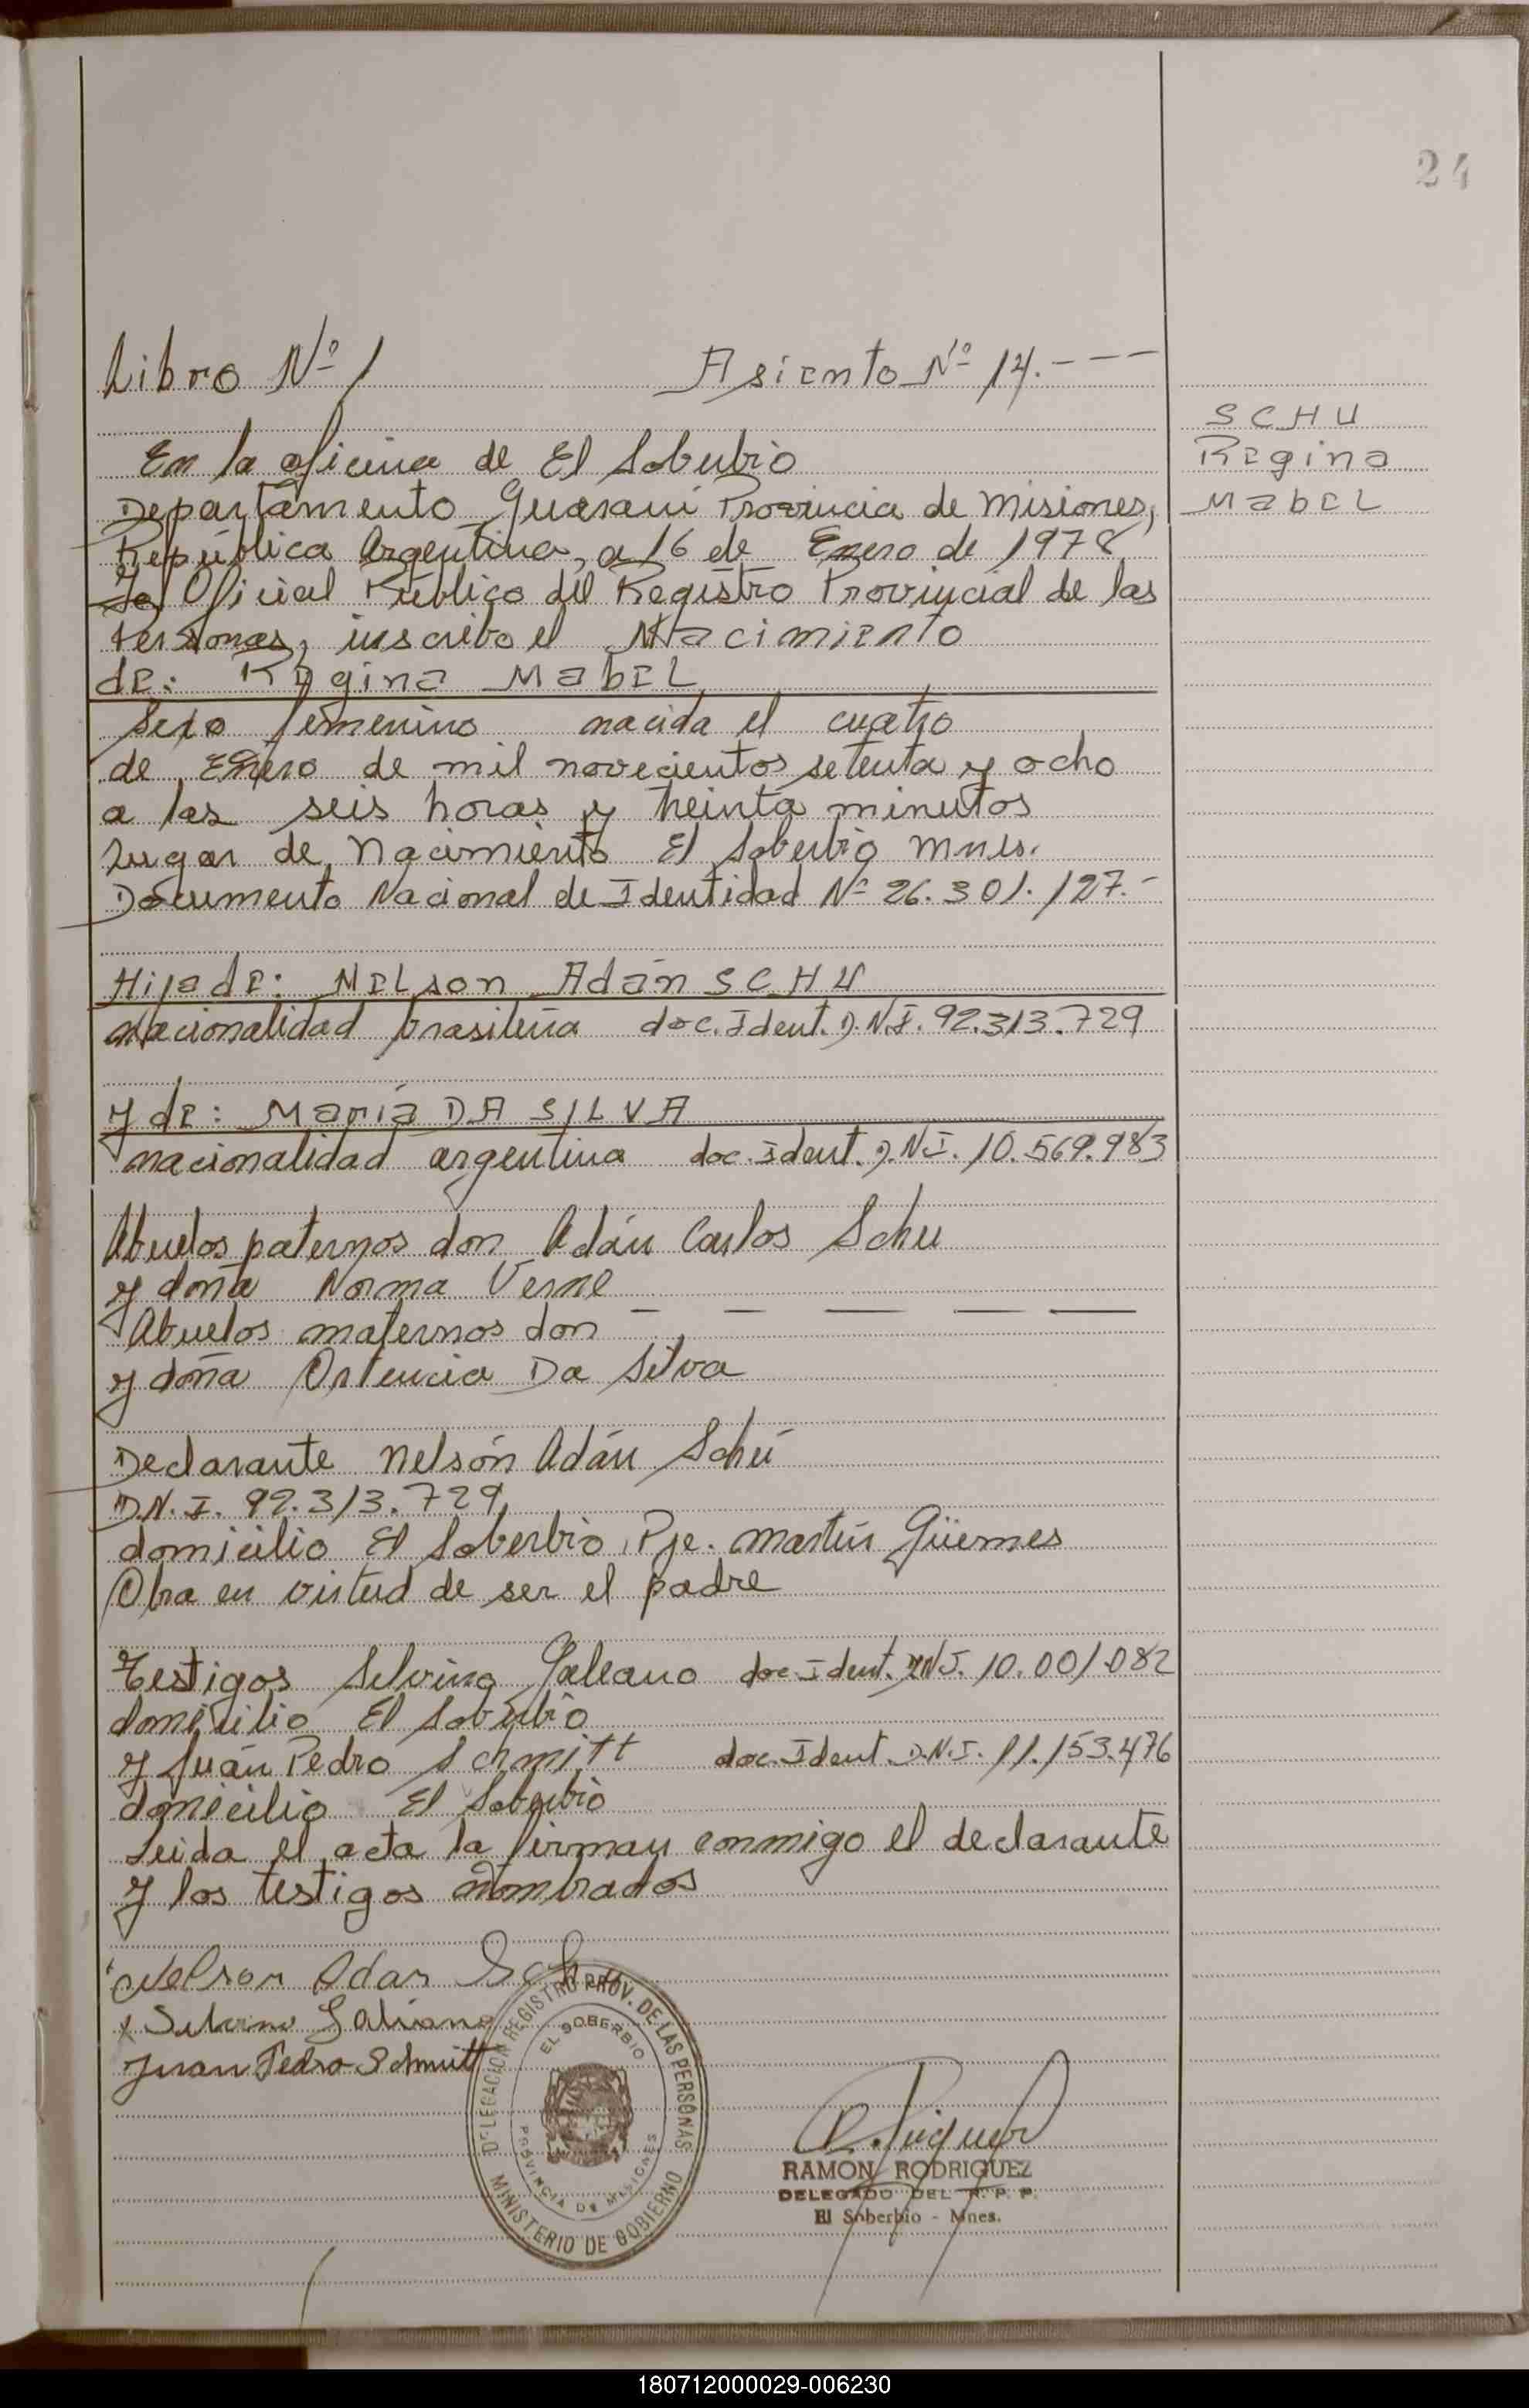 24
Libro Nº 1 Asiento Nº 14. - - -
SCHU
Regina
Mabel
En la oficina de El Soberbio
Departamento Guaraní Provincia de Misiones,
República Argentina, a 16 de Enero de 1978
Yo Oficial Público del Registro Provincial de las
Personas, inscribo el Nacimiento
de: Regina Mabel
Sexo femenino nacida el cuatro
de Enero de mil novecientos setenta y ocho
a las seis horas y treinta minutos
Lugar de Nacimiento El Soberbio Mnes.
Documento Nacional de Identidad Nº 26.301.127.-
Hija de: Nelson Adán SCHU
nacionalidad brasileña doc. Ident. D.N.I. 92.313.729
y de: María DA SILVA
nacionalidad argentina doc. Ident. D.N.I. 10.569.983
Abuelos paternos don Adán Carlos Schu
y doña Norma Verne
Abuelos maternos don — — — — —
y doña Ortencia Da Silva
Declarante Nelsón Adán Schú
D.N.I. 92.313.729
domicilio El Soberbio, Pje. Martín Güemes
Obra en virtud de ser el padre
Testigos Silvino Galeano doc. Ident. D.N.I. 10.001.082
domicilio El Soberbio
y Juán Pedro Schmitt doc. Ident. D.N.I. 11.153.476
domicilio El Soberbio
Leida el acta la firman conmigo el declarante
y los testigos nombrados
Nelson Adan Schu
x Silvino Galiano
Juan Pedro Schmitt
DELEGACION REGISTRO PROV. DE LAS PERSONAS
EL SOBERBIO
PROVINCIA DE MISIONES
MINISTERIO DE GOBIERNO
RAMON RODRIGUEZ
DELEGADO DEL R. P. P.
El Soberbio - Mnes.
180712000029-006230